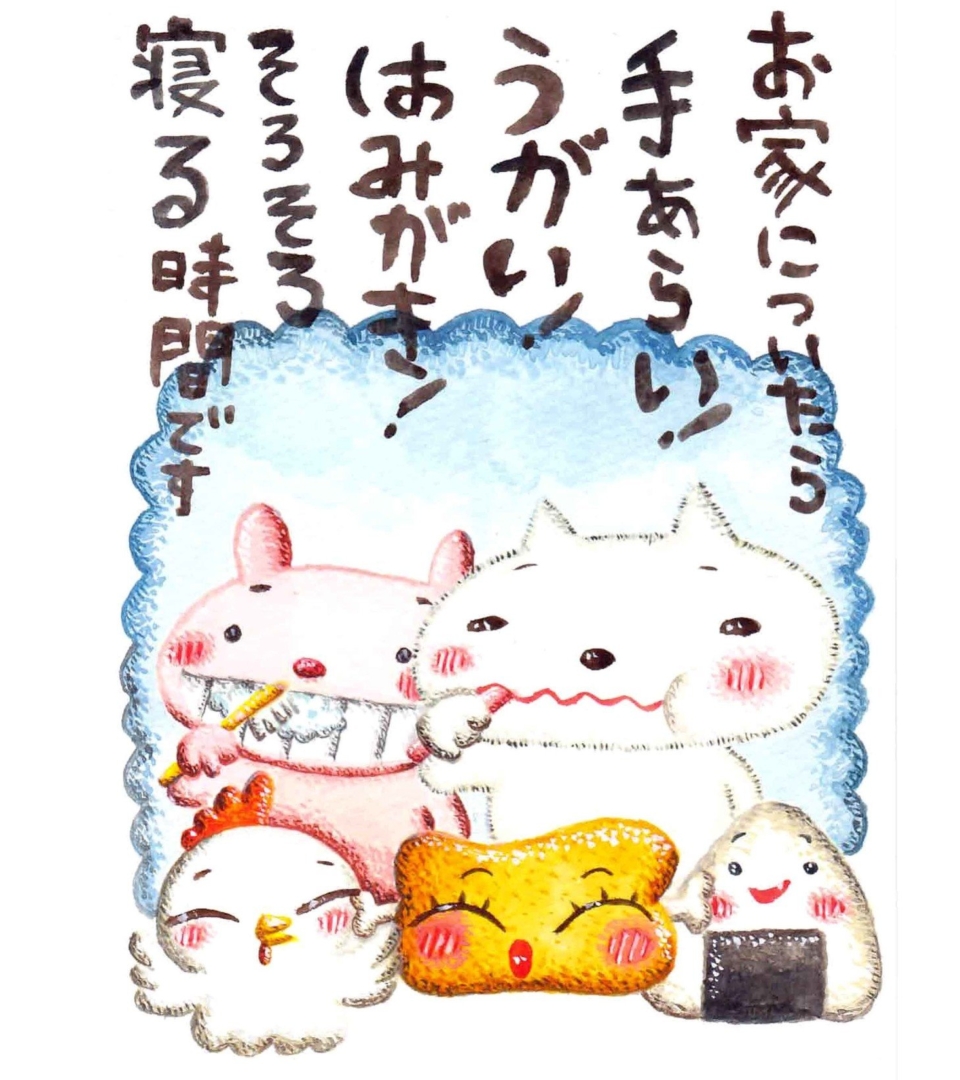 お家についたら
手あらい!
うがい!
はみがき!
そろそろ
寝る時間です